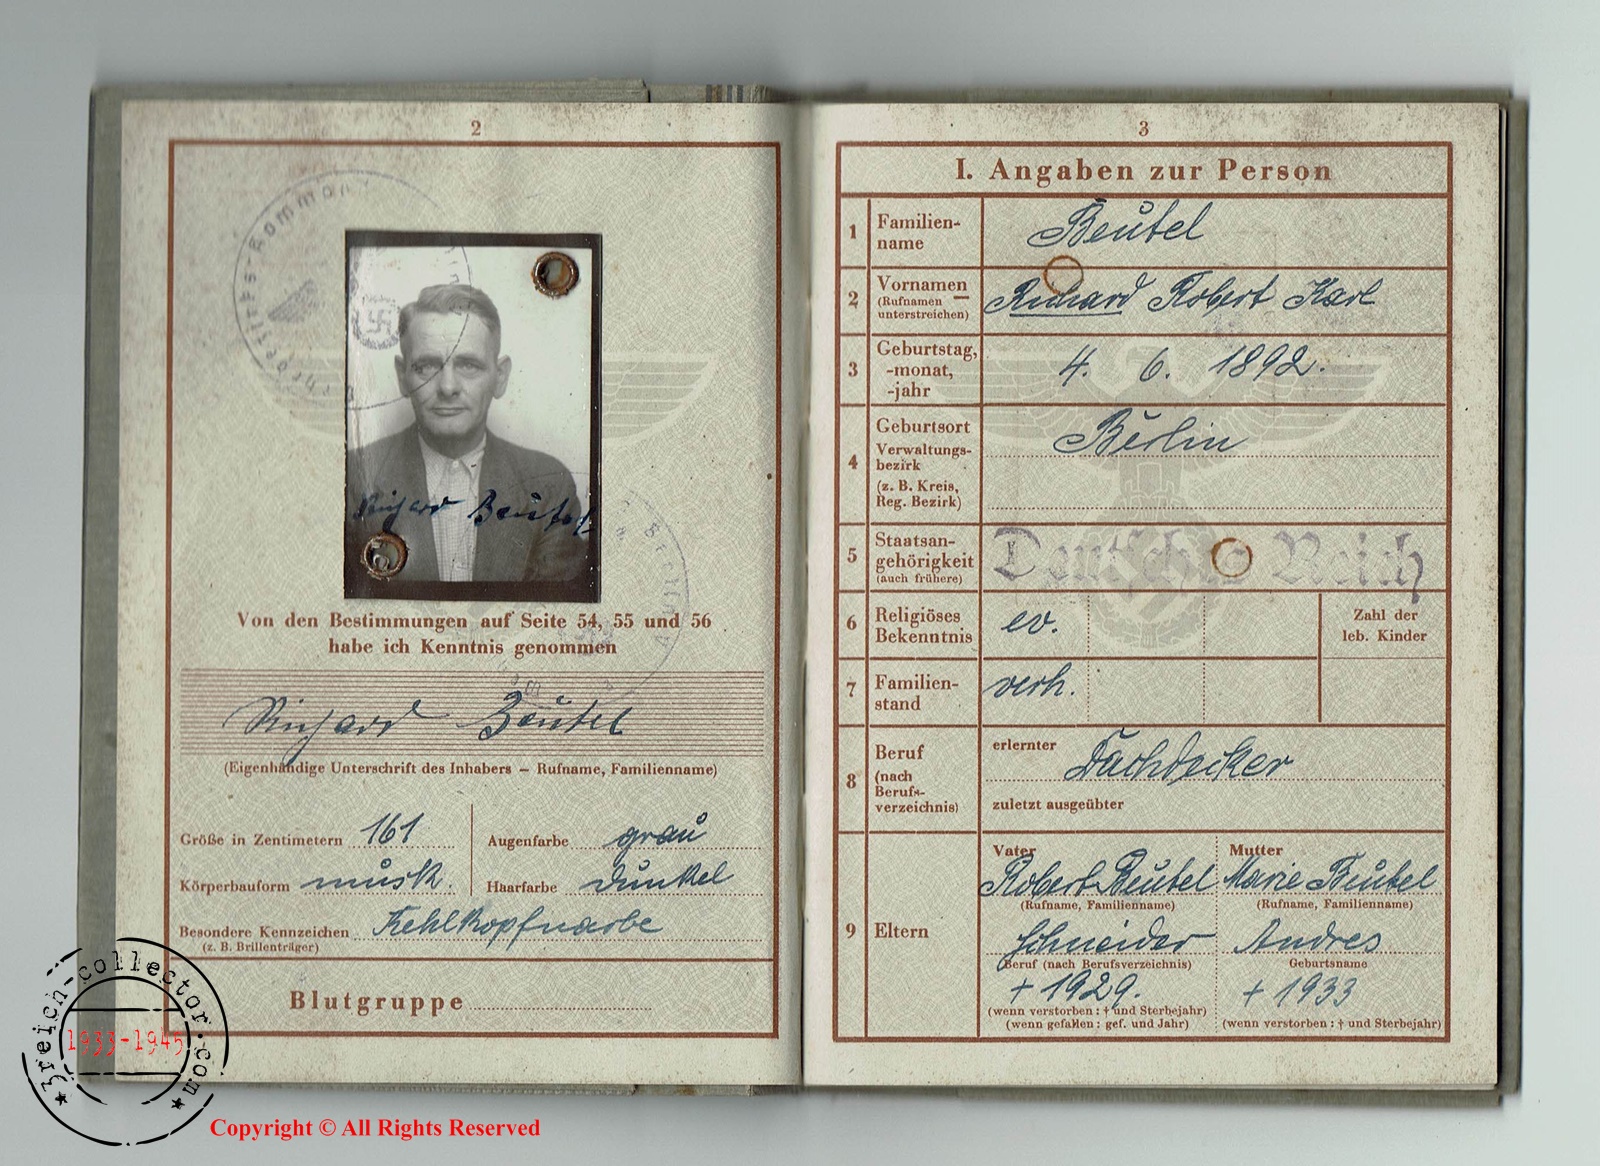 2
Richard Beutel
Von den Bestimmungen auf Seite 54, 55 und 56
habe ich Kenntnis genommen
Richard Beutel
(Eigenhändige Unterschrift des Inhabers – Rufname, Familienname)
Größe in Zentimetern 161
Augenfarbe grau
Körperbauform musk.
Haarfarbe dunkel
Besondere Kennzeichen Kehlkopfnarbe
(z. B. Brillenträger)
Blutgruppe
3
I. Angaben zur Person
1 Familien-
name
Beutel
2 Vornamen
(Rufnamen
unterstreichen)
Richard Robert Karl
3 Geburtstag,
-monat,
-jahr
4. 6. 1892.
4 Geburtsort
Verwaltungs-
bezirk
(z. B. Kreis,
Reg. Bezirk)
Berlin
5 Staatsan-
gehörigkeit
(auch frühere)
Deutsches Reich
6 Religiöses
Bekenntnis
ev.
Zahl der
leb. Kinder
7 Familien-
stand
verh.
8 Beruf
(nach
Berufs-
verzeichnis)
erlernter Dachdecker
zuletzt ausgeübter
9 Eltern
Vater
Robert Beutel
(Rufname, Familienname)
Schneider
Beruf (nach Berufsverzeichnis)
+ 1929.
(wenn verstorben: † und Sterbejahr)
(wenn gefallen: gef. und Jahr)
Mutter
Marie Beutel
(Rufname, Familienname)
Andres
Geburtsname
+ 1933
(wenn verstorben: † und Sterbejahr)
3reich-collector.com
1933-1945
Copyright © All Rights Reserved